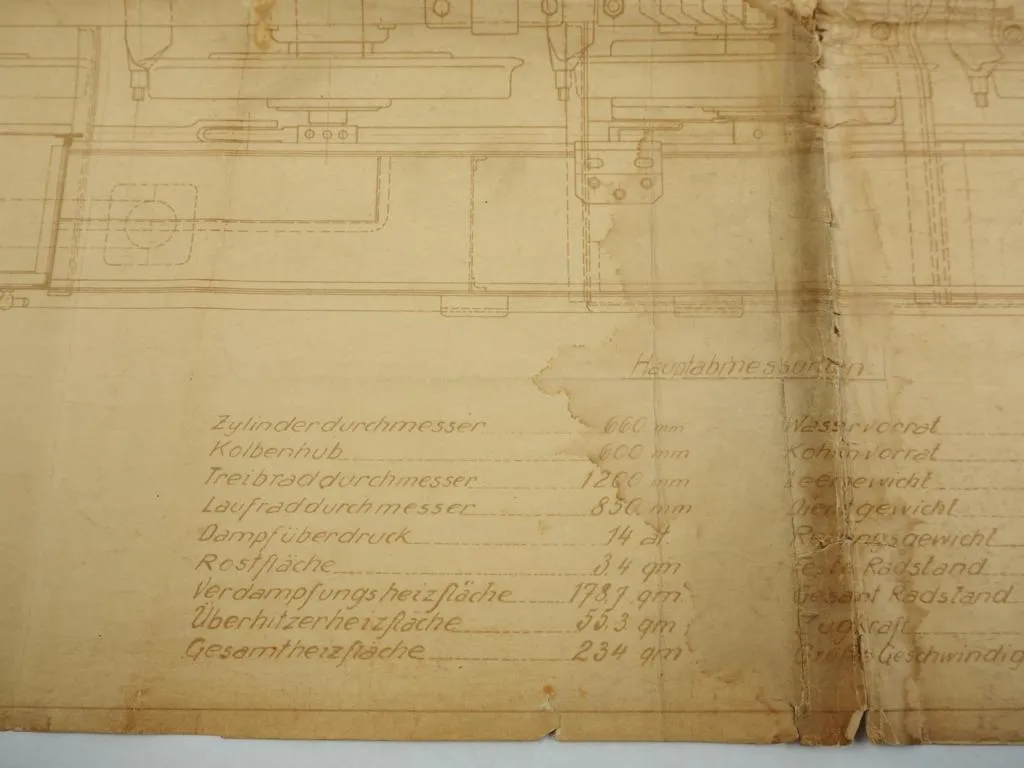 Hauptabmessungen.
Zylinderdurchmesser 660 mm
Kolbenhub 600 mm
Treibraddurchmesser 1200 mm
Laufraddurchmesser 850 mm
Dampfüberdruck 14 at
Rostfläche 3,4 qm
Verdampfungsheizfläche 178,7 qm
Überhitzerheizfläche 55,3 qm
Gesamtheizfläche 234 qm
Wasservorrat
Kohlenvorrat
Leergewicht
Dienstgewicht
Reibungsgewicht
Feste Radstand
Gesamt Radstand
Zugkraft
Größe Geschwindig